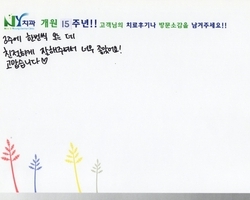 NY치과 개원 15주년!! 고객님의 치료후기나 방문소감을 남겨주세요!!
2주에 한번씩 오는 데
친절하게 잘해주셔서 너무 좋았어요!
고맙습니다♡